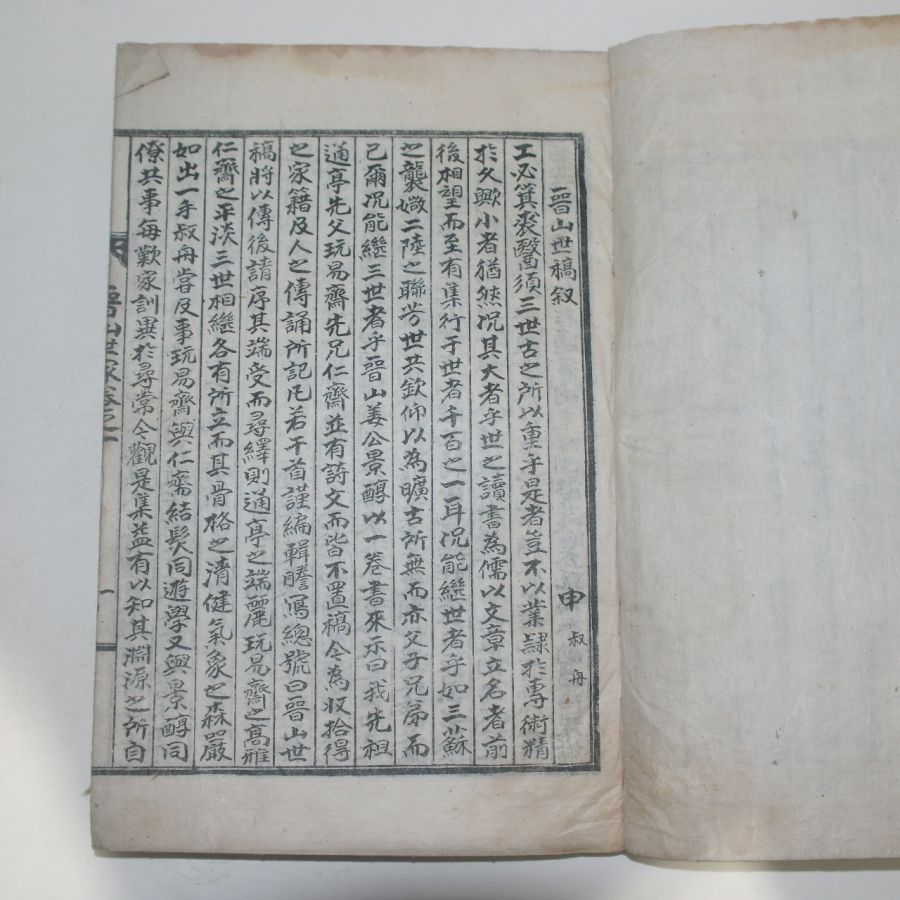 晉山世稿叙
申叔舟
工必箕裘醫須三世古之所以重乎是者豈不以業隷於專術精
於久歟小者猶然况其大者乎世之讀書為儒以文章立名者前
後相望而至有集行于世者千百之一耳况能繼世者乎如三蘇
之襲媺二陸之聯芳世共欽仰以為曠古所無而亦父子兄弟而
已爾况能繼三世者乎晉山姜公景醇以一卷書來示曰我先祖
通亭先父玩易齋先兄仁齋並有詩文而皆不置稿今為収拾得
之家籍及人之傳誦所記凡若干首謹編輯謄寫總號曰晉山世
稿將以傳後請序其端受而尋繹則通亭之端麗玩易齋之高雅
仁齋之平淡三世相繼各有所立而其骨格之清健氣象之森嚴
如出一手叔舟嘗及事玩易齋與仁齋結髮同遊學又與景醇同
僚共事每歎家訓異於尋常今觀是集益有以知其淵源之所自
晉山世稾卷之一
一